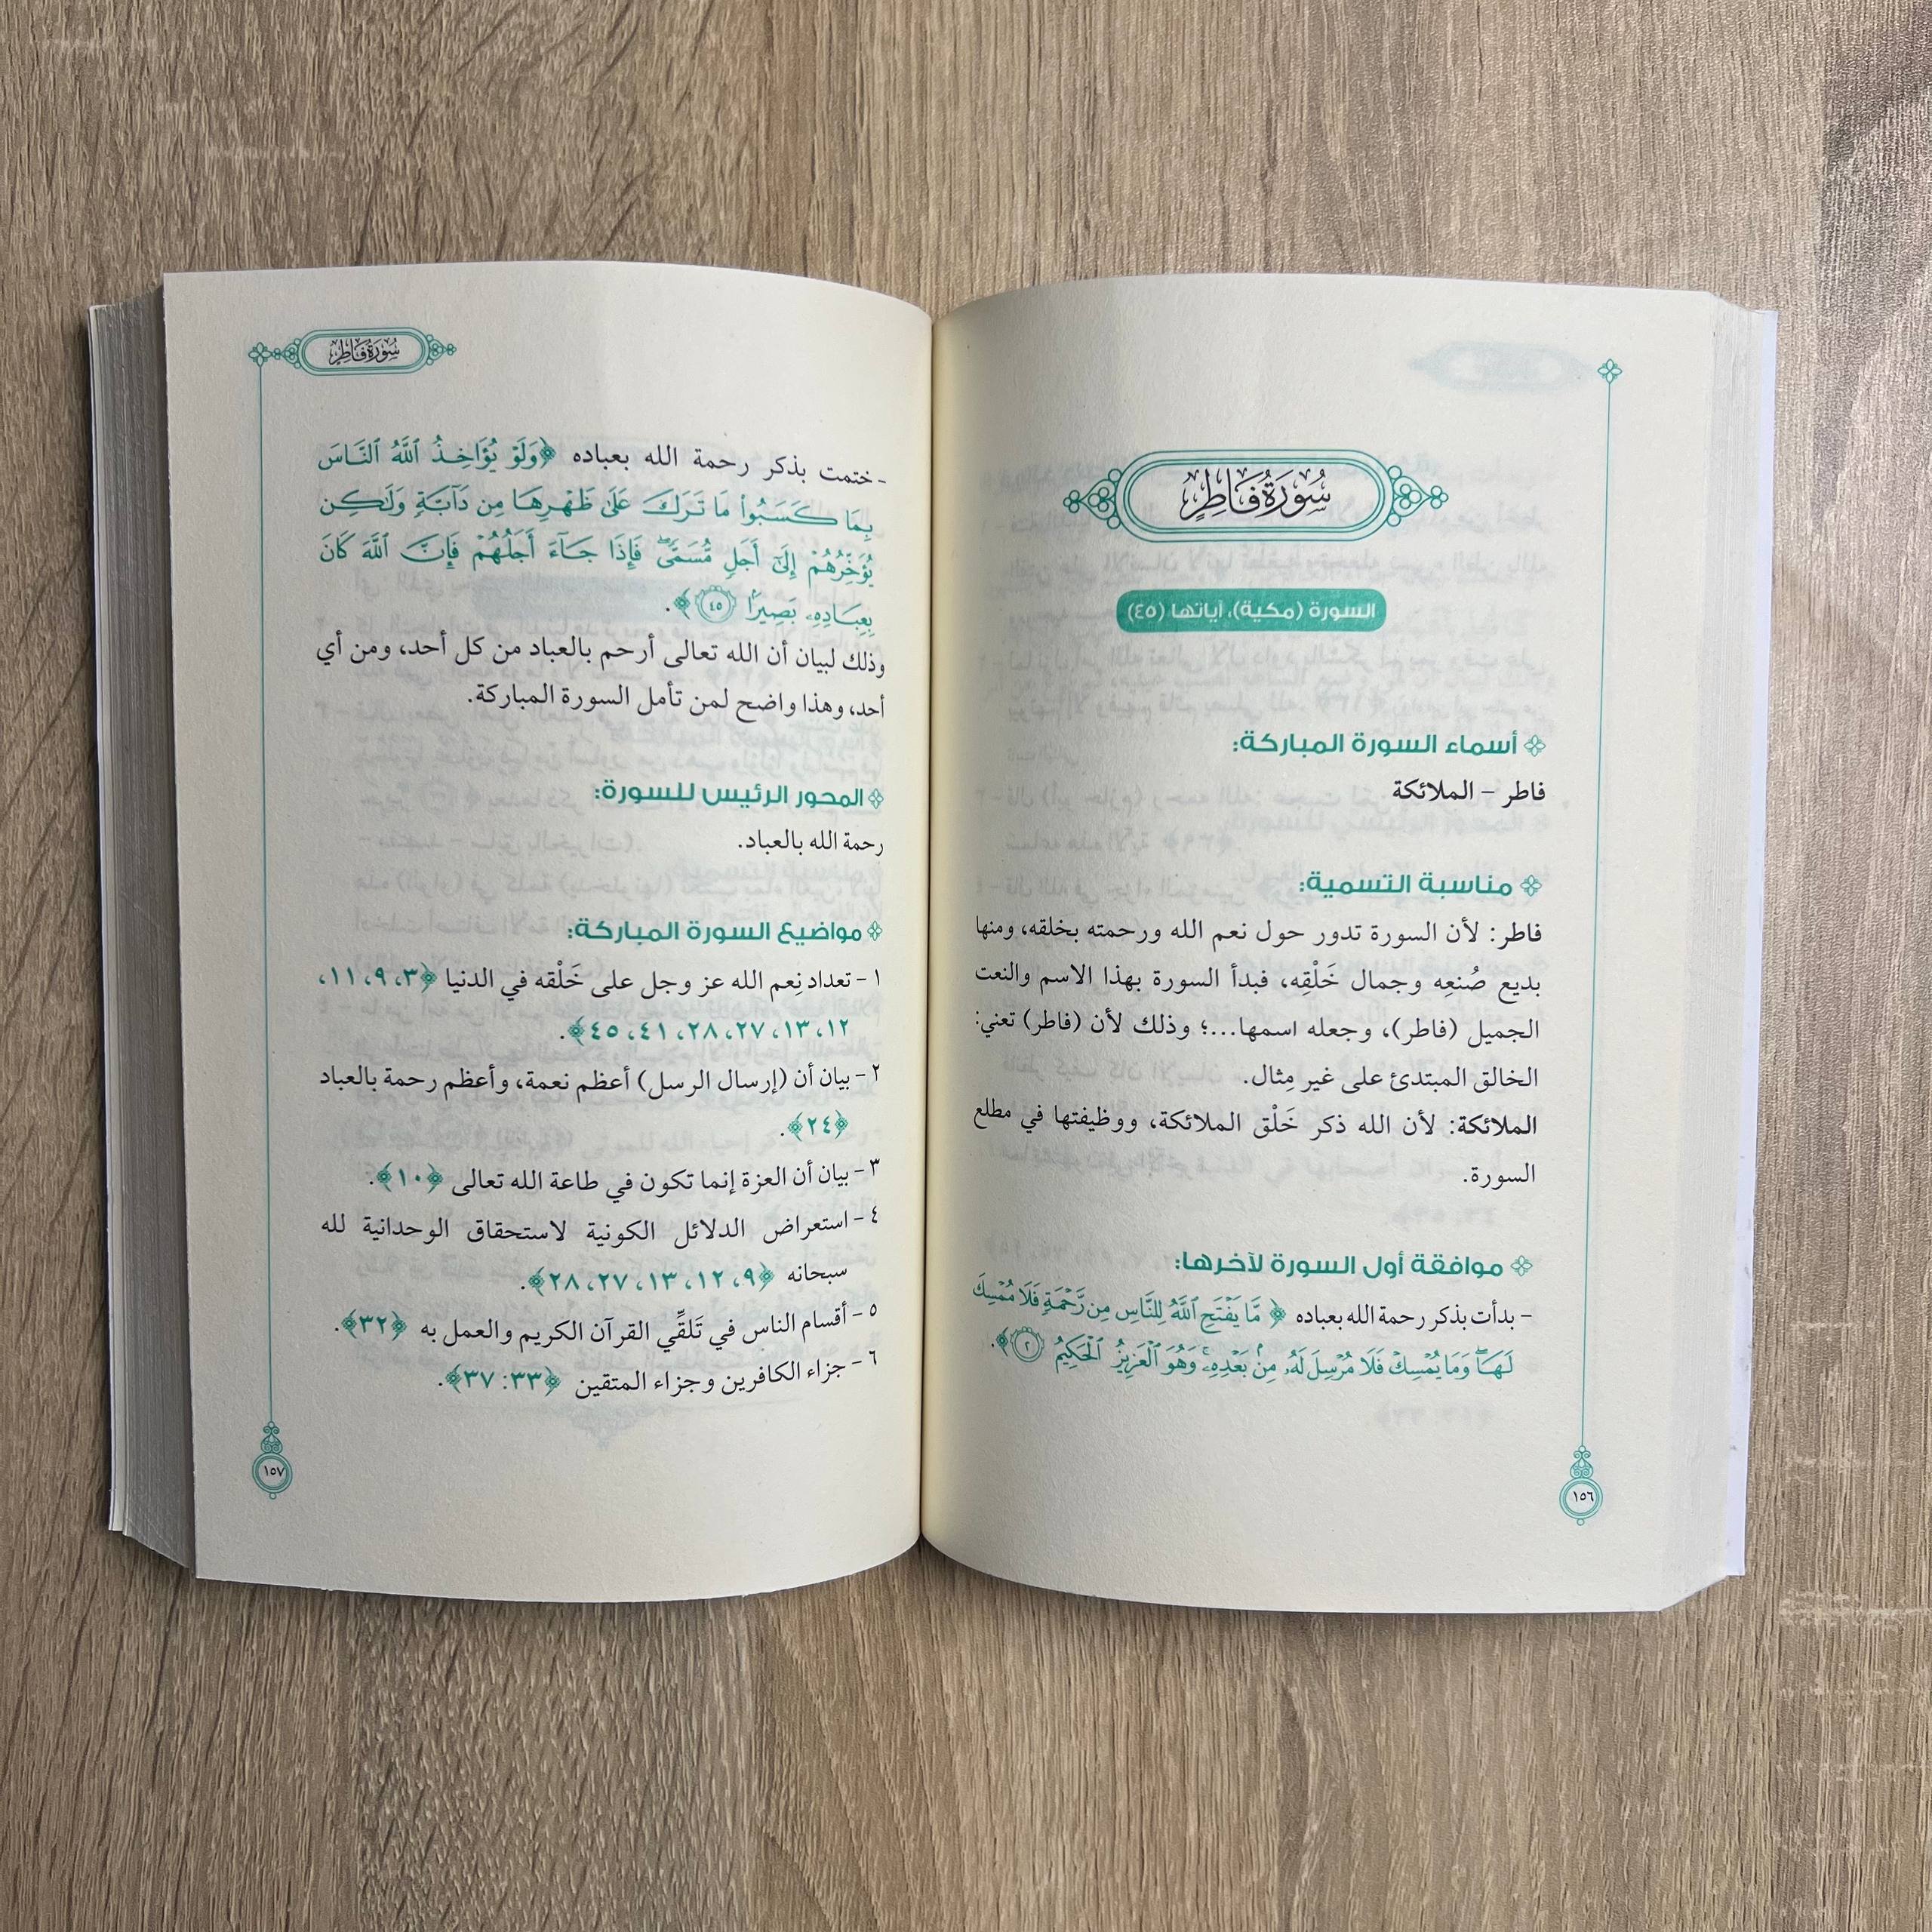 سُورَةُ فَاطِرٍ
السورة (مكية)، آياتها (٤٥)
أسماء السورة المباركة:
فاطر – الملائكة
مناسبة التسمية:
فاطر: لأن السورة تدور حول نعم الله ورحمته بخلقه، ومنها
بديع صُنعِه وجمال خَلْقِه، فبدأ السورة بهذا الاسم والنعت
الجميل (فاطر)، وجعله اسمها...؛ وذلك لأن (فاطر) تعني:
الخالق المبتدئ على غير مِثال.
الملائكة: لأن الله ذكر خَلْق الملائكة، ووظيفتها في مطلع
السورة.
موافقة أول السورة لآخرها:
– بدأت بذكر رحمة الله بعباده ﴿مَّا يَفْتَحِ ٱللَّهُ لِلنَّاسِ مِن رَّحْمَةٍ فَلَا مُمْسِكَ
لَهَا ۖ وَمَا يُمْسِكْ فَلَا مُرْسِلَ لَهُۥ مِنۢ بَعْدِهِۦ ۚ وَهُوَ ٱلْعَزِيزُ ٱلْحَكِيمُ ٢﴾.
١٥٦
سُورَةُ فَاطِرٍ
- ختمت بذكر رحمة الله بعباده ﴿وَلَوْ يُؤَاخِذُ ٱللَّهُ ٱلنَّاسَ
بِمَا كَسَبُوا۟ مَا تَرَكَ عَلَىٰ ظَهْرِهَا مِن دَآبَّةٍ وَلَٰكِن
يُؤَخِّرُهُمْ إِلَىٰٓ أَجَلٍ مُّسَمًّى ۖ فَإِذَا جَآءَ أَجَلُهُمْ فَإِنَّ ٱللَّهَ كَانَ
بِعِبَادِهِۦ بَصِيرًۢا ٤٥﴾.
وذلك لبيان أن الله تعالى أرحم بالعباد من كل أحد، ومن أي
أحد، وهذا واضح لمن تأمل السورة المباركة.
المحور الرئيس للسورة:
رحمة الله بالعباد.
مواضيع السورة المباركة:
١ - تعداد نِعم الله عز وجل على خَلْقه في الدنيا ﴿٣، ٩، ١١،
١٢، ١٣، ٢٧، ٢٨، ٤١، ٤٥﴾.
٢ - بيان أن (إرسال الرسل) أعظم نعمة، وأعظم رحمة بالعباد
﴿٢٤﴾.
٣ - بيان أن العزة إنما تكون في طاعة الله تعالى ﴿١٠﴾.
٤ - استعراض الدلائل الكونية لاستحقاق الوحدانية لله
سبحانه ﴿٩، ١٢، ١٣، ٢٧، ٢٨﴾.
٥ - أقسام الناس في تَلقِّي القرآن الكريم والعمل به ﴿٣٢﴾.
٦ - جزاء الكافرين وجزاء المتقين ﴿٣٣: ٣٧﴾.
١٥٧